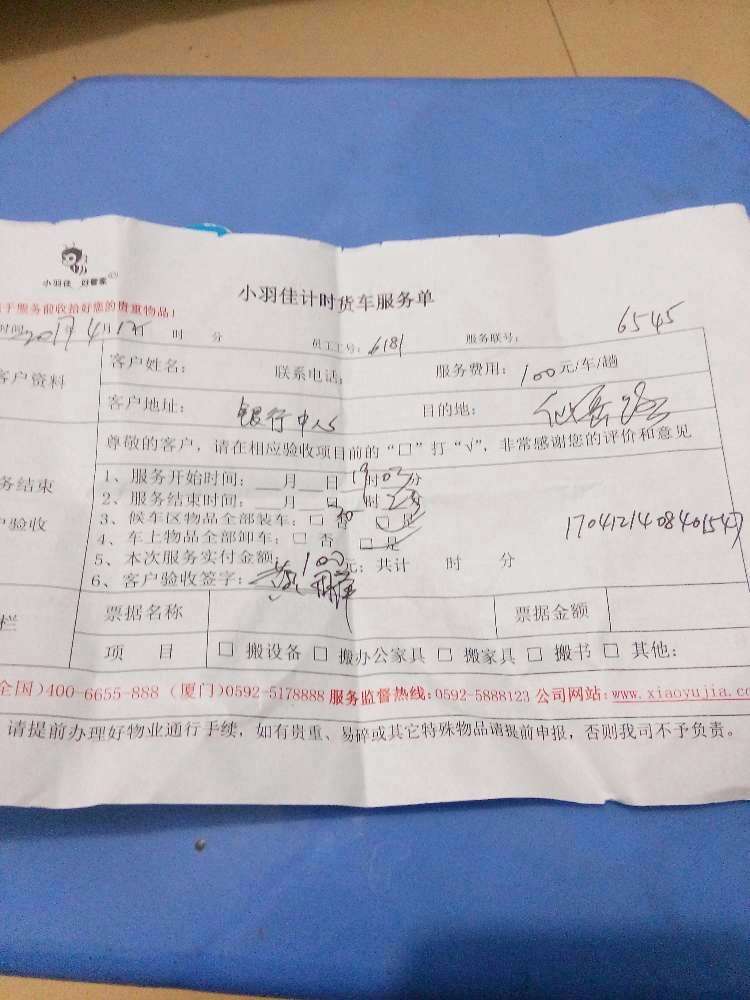 小羽佳 好管家
小羽佳计时货车服务单
于服务前收拾好您的贵重物品!
时间: 2017年4月1 时 分 员工工号: 6181 服务联号: 6545
客户资料 客户姓名: 联系电话: 服务费用: 100元/车/趟
客户地址: 银行中心 目的地: 仙岳路
尊敬的客户,请在相应验收项目前的“□”打“√”,非常感谢您的评价和意见
务结束
户验收
1、服务开始时间: __月__日19时02分
2、服务结束时间: __月__日 时 分
3、候车区物品全部装车: □ 否 □ 是
4、车上物品全部卸车: □ 否 □ 是
5、本次服务实付金额: 100元; 共计 时 分
6、客户验收签字:
栏 票据名称 票据金额
项 目 □ 搬设备 □ 搬办公家具 □ 搬家具 □ 搬书 □ 其他:
全国)400-6655-888 (厦门)0592-5178888 服务监督热线:0592-5888123 公司网站: www.xiaoyujia.c
请提前办理好物业通行手续,如有贵重、易碎或其它特殊物品请提前申报,否则我司不予负责。